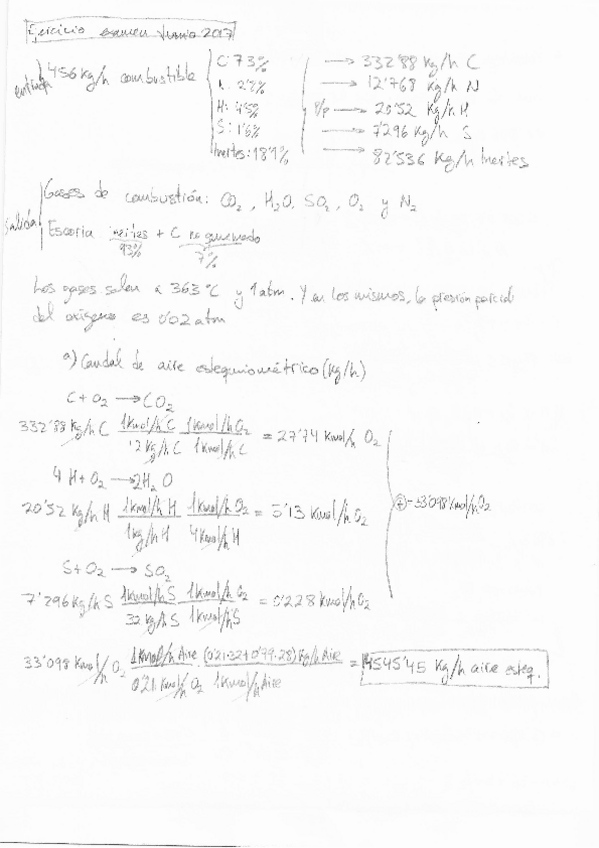 Ejercicio examen Junio 2017
entrada 456 Kg/h combustible
C: 73% → 332'88 Kg/h C
2'8% → 12'768 Kg/h N
H: 4'5% P/p → 20'52 Kg/h H
S: 1'6% → 7'296 Kg/h S
Inertes: 18'1% → 82'536 Kg/h Inertes
Salida
Gases de combustión: CO2, H2O, SO2, O2 y N2
Escoria inertes + C no quemado
93% 7%
Los gases salen a 363 °C y 1 atm. Y en los mismos, la presión parcial
del oxígeno es 0'02 atm
a) Caudal de aire estequiométrico (Kg/h)
C + O2 → CO2
332'88 Kg/h C 1 Kmol/h C / 12 Kg/h C 1 Kmol/h O2 / 1 Kmol/h C = 27'74 Kmol/h O2
4 H + O2 → 2H2O
20'52 Kg/h H 1 Kmol/h H / 1 Kg/h H 1 Kmol/h O2 / 4 Kmol/h H = 5'13 Kmol/h O2
33'098 Kmol/h O2
S + O2 → SO2
7'296 Kg/h S 1 Kmol/h S / 32 Kg/h S 1 Kmol/h O2 / 1 Kmol/h S = 0'228 Kmol/h O2
33'098 Kmol/h O2 1 Kmol/h Aire / 0'21 Kmol/h O2 (0'21·32+0'79·28) Kg/h Aire / 1 Kmol/h Aire = 4545'45 Kg/h aire esteq.